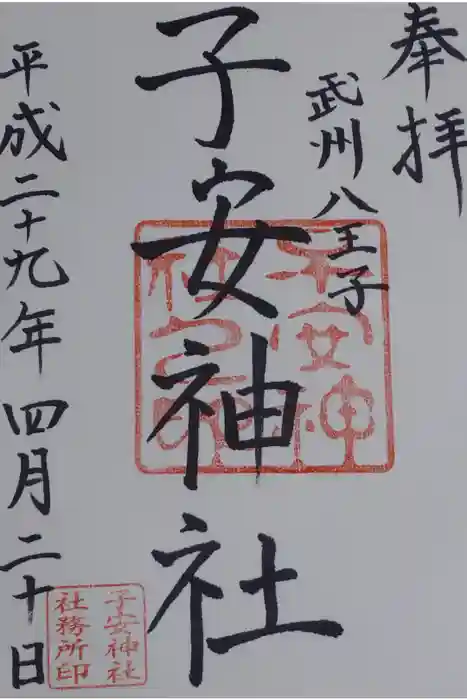 奉拝
武州八王子
子安神社
平成二十九年四月二十日
子安神
社之印
子安神社
社務所印